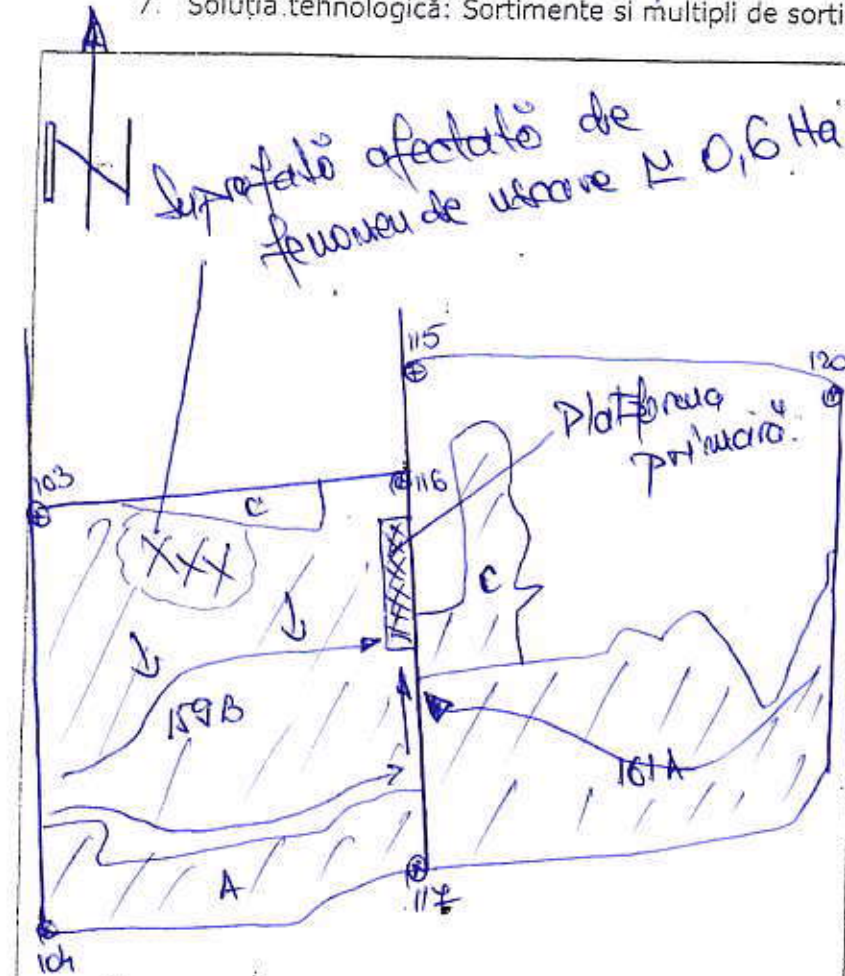 7. Soluția tehnologică: Sortimente si multipli de sorti
N
Suprafată afectată de
fenomen de uscare ≃ 0,6 Ha
115
120
Platforma
primară.
103
116
C
XXX
C
159B
161A
A
117
104